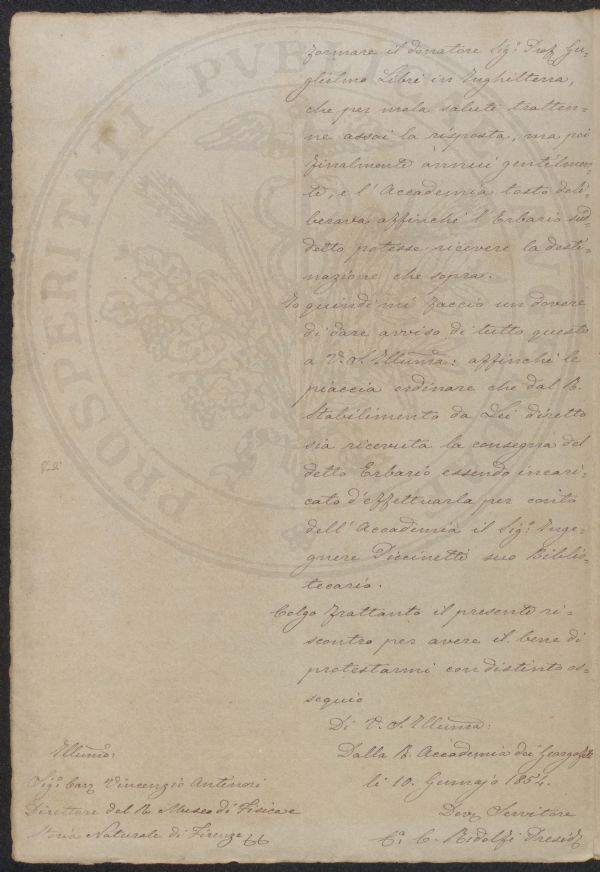 formare il donatore Sig.r Prof. Gu=
glielmo Libri in Inghilterra,
che per mala salute tratten=
ne assai la risposta, ma poi
finalmente annuì gentilmen=
te, e l'Accademia tosto deli=
berava affinchè l'Erbario sud=
detto potesse ricevere la desti=
nazione che sopra.
Io quindi mi faccio un dovere
di dare avviso di tutto questo
a V. S. Illuma: affinchè le
piaccia ordinare che dal R.
Stabilimento da Lei diretto
sia ricevuta la consegna del
detto Erbario essendo incari=
cato d'effettuarla per conto
dell'Accademia il Sig.r Inge=
gnere Diccinetti suo Biblio=
tecario.
Colgo frattanto il presente ri=
scontro per avere il bene di
protestarmi con distinto os=
sequio
Di V. S. Illuma:
Dalla R. Accademia dei Georgofili
li 10. Gennajo 1854.
Dev. Servitore
C. Ridolfi Presid.
Illumo:
Sig.r Cav. Vincenzio Antinori
Direttore del R. Museo di Fisica e
Storia Naturale di Firenze
PROSPERITATI PVBL